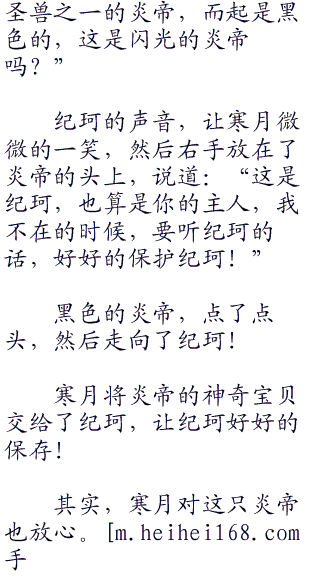 圣兽之一的炎帝，而起是黑
色的，这是闪光的炎帝
吗？”
纪珂的声音，让寒月微
微的一笑，然后右手放在了
炎帝的头上，说道：“这是
纪珂，也算是你的主人，我
不在的时候，要听纪珂的
话，好好的保护纪珂！”
黑色的炎帝，点了点
头，然后走向了纪珂！
寒月将炎帝的神奇宝贝
交给了纪珂，让纪珂好好的
保存！
其实，寒月对这只炎帝
也放心。[m.heihei168.com
手